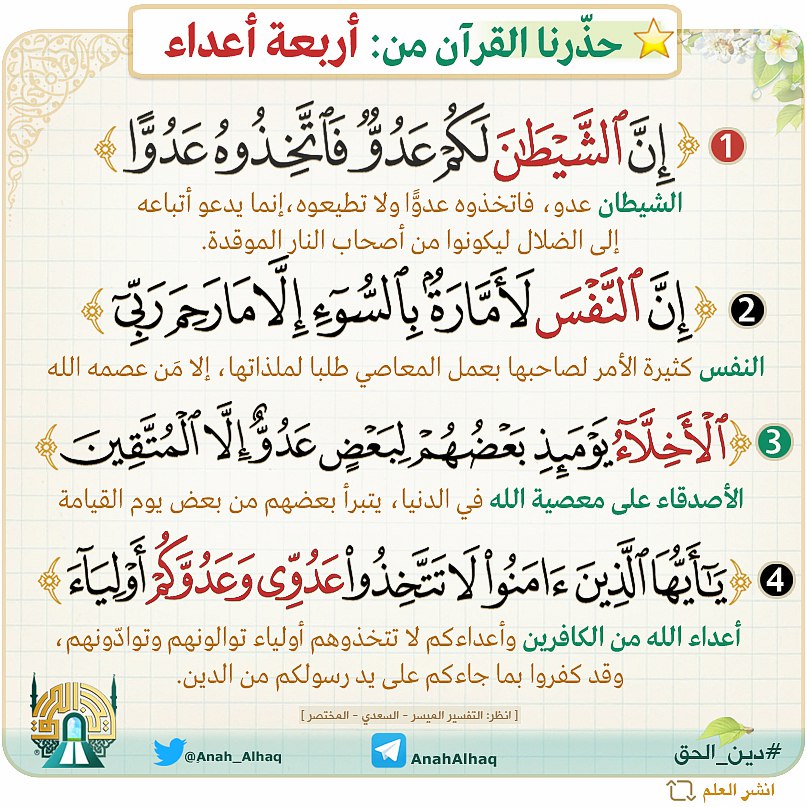 حذّرنا القرآن من: أربعة أعداء
1 ﴿ إِنَّ ٱلشَّيْطَٰنَ لَكُمْ عَدُوٌّ فَٱتَّخِذُوهُ عَدُوًّا ﴾
الشيطان عدو، فاتخذوه عدوًّا ولا تطيعوه، إنما يدعو أتباعه
إلى الضلال ليكونوا من أصحاب النار الموقدة.
2 ﴿ إِنَّ ٱلنَّفْسَ لَأَمَّارَةٌۢ بِٱلسُّوٓءِ إِلَّا مَا رَحِمَ رَبِّىٓ ﴾
النفس كثيرة الأمر لصاحبها بعمل المعاصي طلبا لملذاتها، إلا مَن عصمه الله
3 ﴿ ٱلْأَخِلَّآءُ يَوْمَئِذٍۭ بَعْضُهُمْ لِبَعْضٍ عَدُوٌّ إِلَّا ٱلْمُتَّقِينَ ﴾
الأصدقاء على معصية الله في الدنيا، يتبرأ بعضهم من بعض يوم القيامة
4 ﴿ يَٰٓأَيُّهَا ٱلَّذِينَ ءَامَنُوا۟ لَا تَتَّخِذُوا۟ عَدُوِّى وَعَدُوَّكُمْ أَوْلِيَآءَ ﴾
أعداء الله من الكافرين وأعداءكم لا تتخذوهم أولياء توالونهم وتوادّونهم،
وقد كفروا بما جاءكم على يد رسولكم من الدين.
[ انظر: التفسير الميسر - السعدي - المختصر ]
#دين_الحق
AnahAlhaq
@Anah_Alhaq
انشر العلم